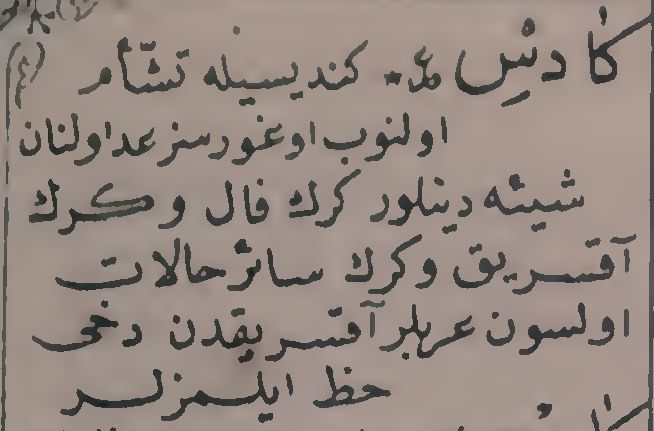 كادس ع۰ كنديسيله تشّأم
اولنوب اوغورسز عد اولنان
شيئه دينلور كرك فال و كرك
آقسريق وكرك سائر حالات
اولسون عربلر آقسريقدن دخى
حظ ايلمزلر